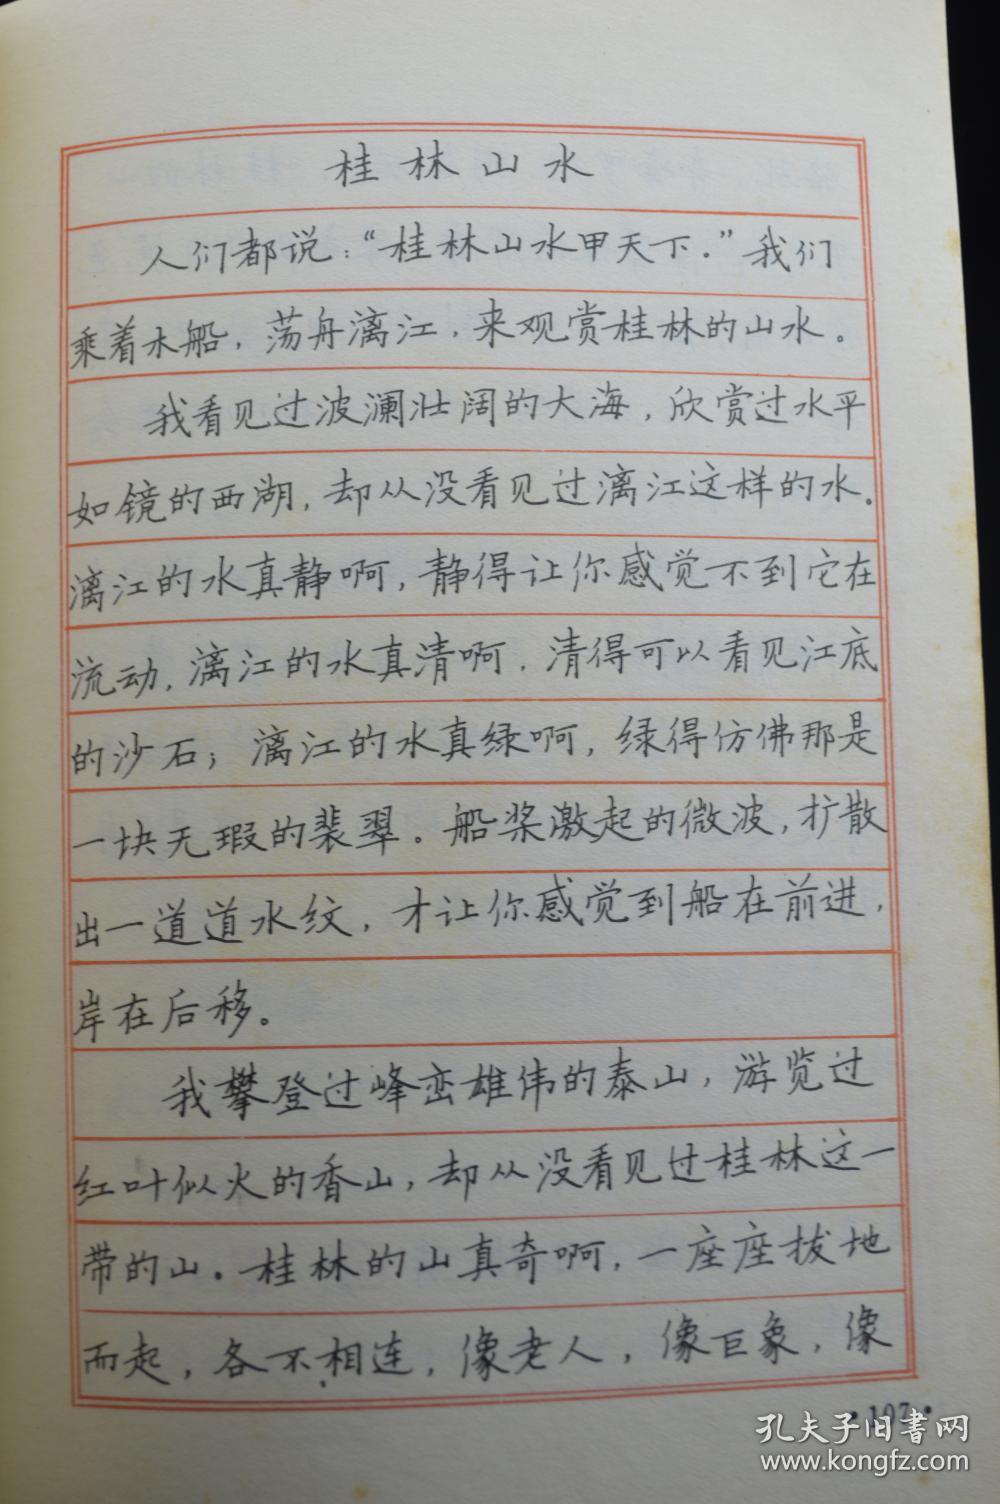 桂林山水
人们都说：“桂林山水甲天下.”我们
乘着木船，荡舟漓江，来观赏桂林的山水。
我看见过波澜壮阔的大海，欣赏过水平
如镜的西湖，却从没看见过漓江这样的水。
漓江的水真静啊，静得让你感觉不到它在
流动，漓江的水真清啊，清得可以看见江底
的沙石；漓江的水真绿啊，绿得仿佛那是
一块无瑕的裴翠。船桨激起的微波，扩散
出一道道水纹，才让你感觉到船在前进，
岸在后移。
我攀登过峰峦雄伟的泰山，游览过
红叶似火的香山，却从没看见过桂林这一
带的山。桂林的山真奇啊，一座座拔地
而起，各不相连，像老人，像巨象，像
·107·
孔夫子旧书网
www.kongfz.com